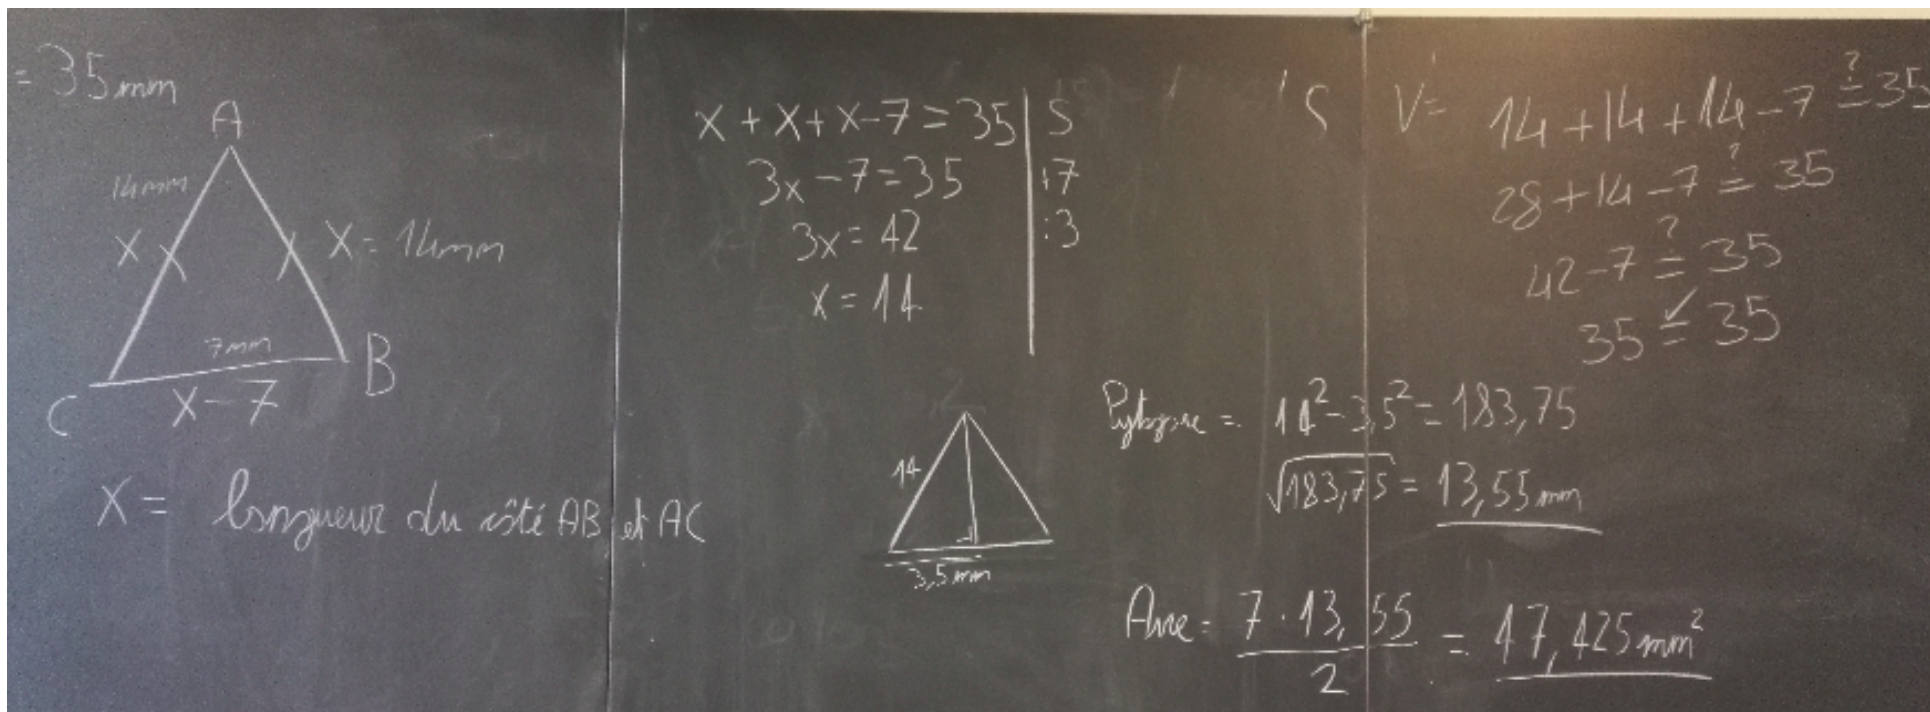 = 35 mm
A
14 mm
X
X = 14 mm
7 mm
C
B
X - 7
X = longueur du côté AB et AC
X + X + X - 7 = 35 | S
3x - 7 = 35 | +7
3x = 42 | :3
x = 14
14
3,5 mm
V =
14 + 14 + 14 - 7 ≟ 35
28 + 14 - 7 ≟ 35
42 - 7 ≟ 35
35 = ✓ 35
14² - 3,5² = 183,75
√183,75 = 13,55 mm
Aire = 7 · 13,55 / 2 = 47,425 mm²